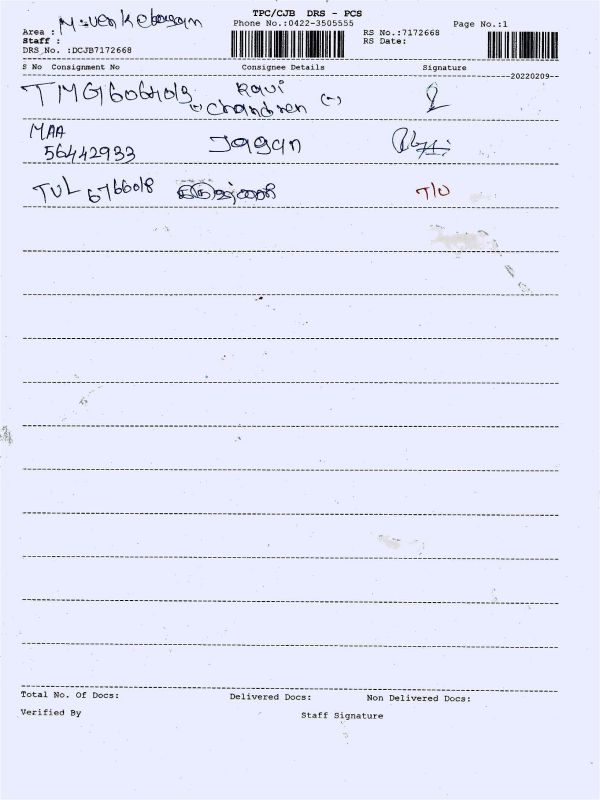 TPC/CJB DRS - PCS
Area : M. Venkatesan Phone No.:0422-3505555 Page No.:1
Staff : RS No.:7172668
DRS No. :DCJB7172668 RS Date:
S No Consignment No Consignee Details Signature
20220209
Ravi
Chandren (-)
MAA
56442933 Jagan
TUL 6766018 T/U
Total No. Of Docs: Delivered Docs: Non Delivered Docs:
Verified By Staff Signature